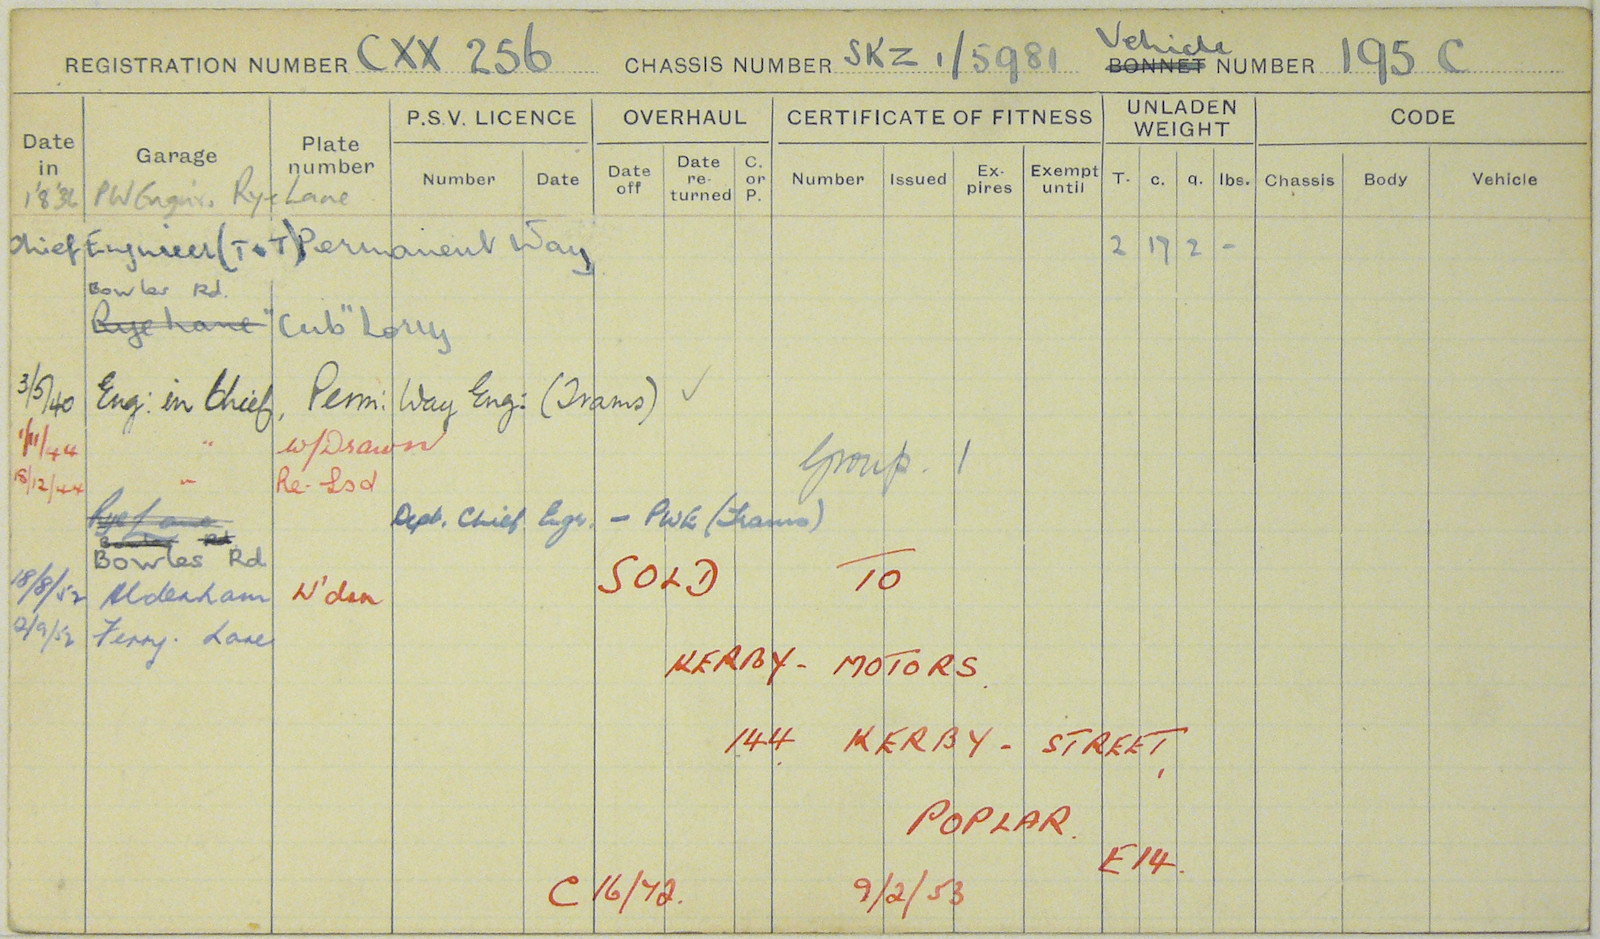 REGISTRATION NUMBER CXX 256 CHASSIS NUMBER SKZ 1/5981 Vehicle BONNET NUMBER 195 C
Date in Garage Plate number P.S.V. LICENCE Number Date OVERHAUL Date off Date re-turned C. or P. CERTIFICATE OF FITNESS Number Issued Ex-pires Exempt until UNLADEN WEIGHT T. c. q. lbs. CODE Chassis Body Vehicle
1'8'36 PW Engin'r. Rye Lane
Chief Engineer (T & T) Permanent Way 2 17 2 -
Bowles Rd.
Rye Lane "Cub" Lorry
3/5/40 Eng: in Chief, Perm: Way Eng: (Trams) ✓
1/11/44 " w/Drawn
Group. 1
18/12/44 " Re-Lsd
Rye Lane Dept. Chief Engr. - PWE (Trams)
Bowles Rd
Bowles Rd
18/8/52 Aldenham W'dn SOLD TO
12/9/52 Ferry. Lane
KERBY - MOTORS.
144 KERBY - STREET,
POPLAR.
E14.
C 16/72. 9/2/53